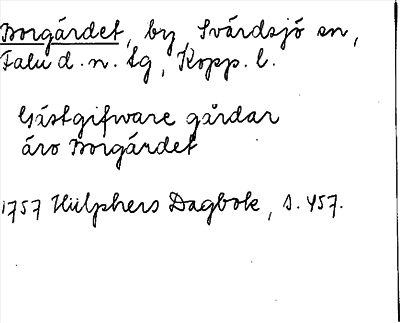 Borgärdet, by, Svärdsjö sn,
Falu d. n. tg, Kopp. l.
Gästgifware gårdar
äro Borgärdet
1757 Hülphers Dagbok, s. 457.